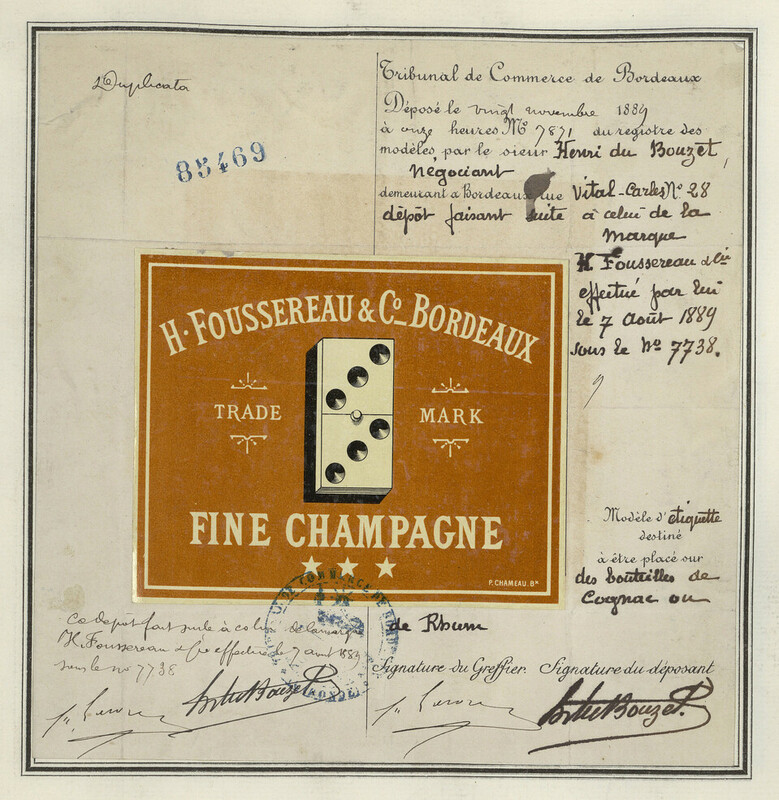 Duplicata
85469
Tribunal de Commerce de Bordeaux
Déposé le vingt novembre 1889
à onze heures No 7871 du registre des
modèles, par le sieur Henri du Bouzet,
négociant
demeurant à Bordeaux, rue Vital-Carles No 28
dépôt faisant suite à celui de la
marque
H. Foussereau & Cie
effectué par lui
le 7 août 1889
sous le No 7738.
H. FOUSSEREAU & Co_ BORDEAUX
TRADE MARK
FINE CHAMPAGNE
P. CHAMEAU. Bx
Modèle d'étiquette
destiné
à être placé sur
des bouteilles de
Cognac ou
de Rhum
Ce dépôt fait suite à celui de la marque
H. Foussereau & Cie effectué le 7 août 1889
sous le no 7738
Signature du Greffier. Signature du déposant
du Bouzet
du Bouzet